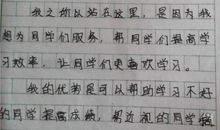 我之所以站在这里，是因为我
想为同学们服务，帮同学们提高学
习效率，让同学们更喜欢学习。
我的优势是可以帮助学习不好
的同学提高成绩，帮近视的同学